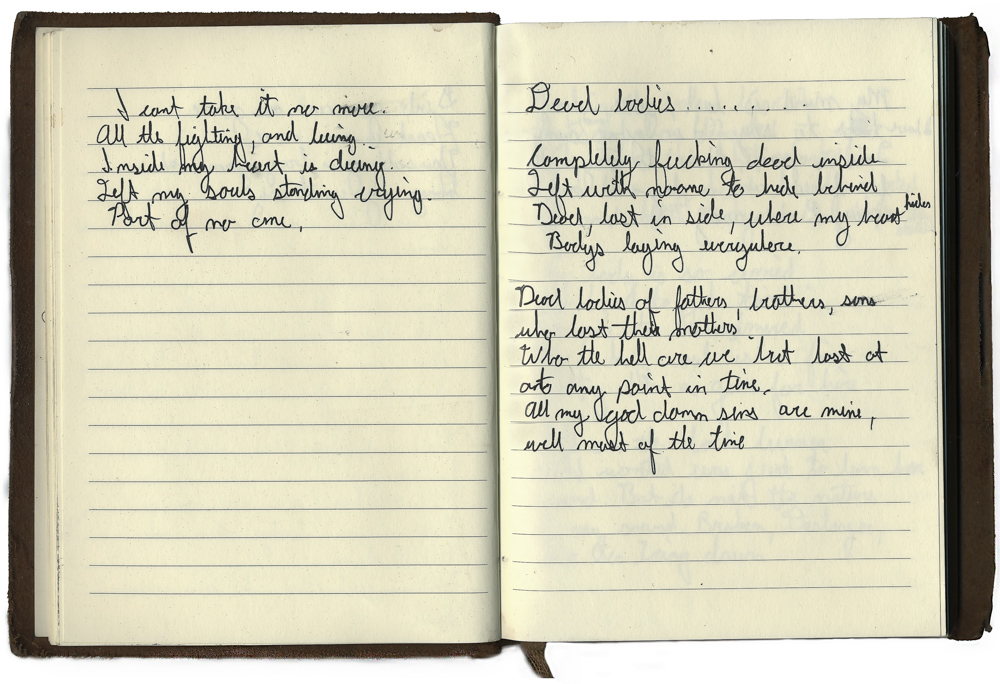 I cant take it no more.
All the fighting, and luing
Inside my heart is dieing.
Left my souls standing crying.
Part of no one.
Dead bodies........
Completely fucking dead inside
Left with noone to hide behind
Dead, lost in side, where my heart hides
Bodys laying everywhere.
Dead bodies of fathers, brothers, sons
who lost their mothers
Who the hell are we but lost at
any point in time.
All my god damn sins are mine,
well most of the time